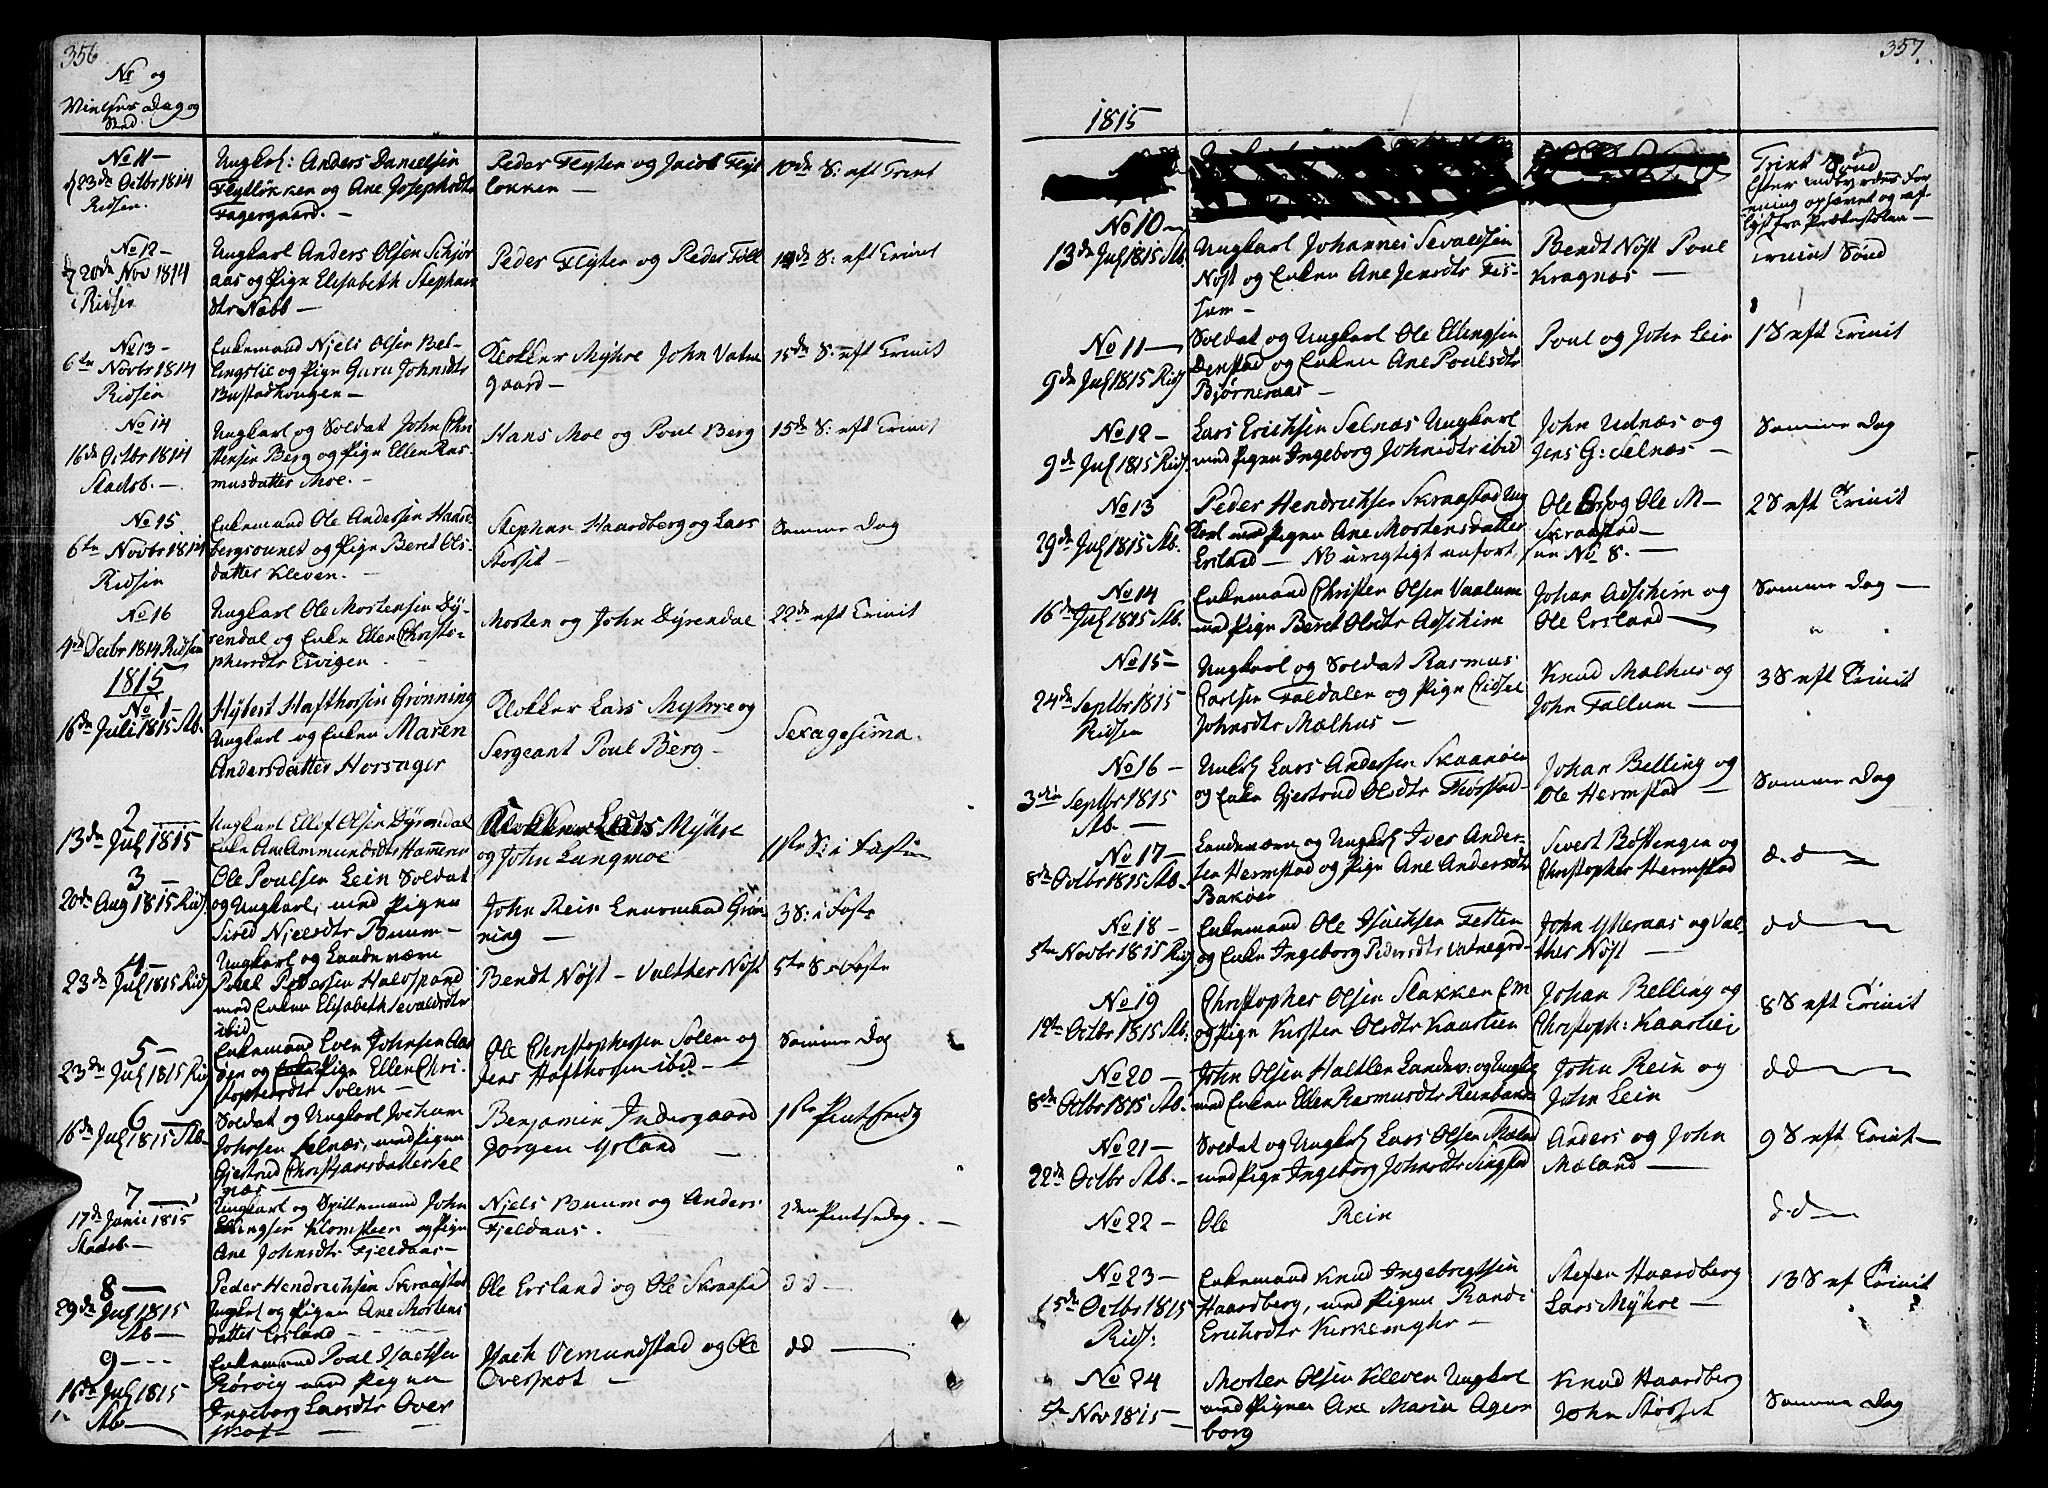 356
No og
Vielses Dag og
Sted.
No 11 —
d 23de Octbr 1814
Ridsen.
Ungkrl: Anders Danielsen
Flytløkken og Ane Josephsdtr
Fagergaard. —
Peder Flyten og Jacob Flyt
løkken —
10de S: eft Trint
No 12 —
d 20de Nov 1814
i Ridsen
Ungkarl Anders Olsen Schjør
aas og Pige Elisabeth Stephans
dtr Nabb —
Peder Flyten og Peder
S: eft Trinit
No 13 —
6te Novbr 1814
Ridsen
Enkemand Njels Olsen Bel-
lingslie og Pige Guru Johnsdtr
Bustadhougen —
Klokker Myhre John Vatn
gaard —
15de S: eft Trinit
No 14
16de Octbr 1814
Stadsb. —
Ungkarl og Soldat John Chri
stensen Berg og Pige Ellen Ras
musdatter Moe. —
Hans Moe og Poul Berg
15de S: eft Trinit
No 15
6te Novbr 1814
Ridsen
Enkemand Ole Andersen Haard
bergsounet og Pige Beret Ols-
datter Kleven. —
Stephan Haardberg og Lars
Støsset —
Samme Dag
No 16
4de Decbr 1814 Ridsen
Ungkarl Ole Mortensen Dy-
rendal og Enke Ellen Christo-
phersdtr Esvigen —
Morten og John Dyrendal
22de eft Trinit
1815
No 1 —
16de Juli 1815 Stb.
Hybert Hafthorsen Grønning
Ungkarl og Enke Maren
Andersdatter Horsager
Klokker Lars Myhre og
Sergeant Poul Berg —
Sexagesima.
2 —
13de Julj 1815
Ungkarl Ellef Olsen Dyrendal
Enke Ane Ammundsdtr Hammer
Klokker Lars Myhre
og John Langmoe
1ste S: i Fasten
3 —
20de Aug 1815 Rids.
Ole Poulsen Lein Soldat
og Ungkarl, med Pigen
Sired Njelsdtr Buum —
John Rein Grøn-
ning —
3 S: i Faste
4 —
23de Julj 1815 Rids
Ungkarl og Landeværn
Poul Pedersen Haldsrand
med Enken Elisabeth Sevaldsdtr
ibid
Bendt Nøst — Valther Nøst
5te S i Faste
5 —
23de Julj 1815 Rids
Enkemand Even Johnsen Aas
den og Pige Ellen Chri-
stophersdtr Solem —
Ole Christophersen Solem og
Jens Hafthorsen ibid —
Samme Dag
6 —
16de Julj 1815 Stb.
Soldat og Ungkarl Jochum
Johnsen Selnæs, med Pigen
Gjertrud Christjansdatter Sel
næs —
Benjamin Indergaard
Jørgen Ysland —
1ste Pintsedag
7 —
17de Junii 1815
Stadsb —
Ungkarl og Spillemand John
Ellingsen Klompen og Pige
Ane Johnsdtr Fjeldaas —
Njels Buum og Anders
Fjeldaas.
2den Pintsedag. —
8 —
29de Julj 1815
Stb —
Peder Hendrichsen Skraastad
Ungkrl og Pigen Ane Mortens
datter Ersland —
Ole Ersland og Ole Skraastad
dd —
9 —
16de Julj 1815
Stb —
Enkemand Poul Isachsen
Rørvig med Pigen
Ingeborg Larsdtr Over
skot —
Isach Vemundstad og Ole
Overskot —
dd —
357.
1815
Trint Sønd
Efter indbyrdes For
ening ophævet og af-
lyst fra Prækestolen —
No 10 —
13de Julj 1815 Stb.
Ungkarl Johannes Sevaldsen
Nøst og Enken Ane Jensdtr Fis-
sum —
Bendt Nøst Poul
Kragnæs —
Trinit Sønd
No 11 —
9de Julj 1815 Rids
Soldat og Ungkarl Ole Ellingsen
Denstad og Enken Ane Poulsdtr
Bjørneraas —
Poul og John Lein
1 S eft Trinit
No 12 —
9de Julj 1815 Rids.
Lars Erichsen Selnæs Ungkarl
med Pigen Ingeborg Johnsdtr ibid
John Udnæs og
Jens G: Selnæs —
Samme Dag
No 13
29de Julj 1815 Stb.
Peder Hendrichsen Skraastad Ung
karl med Pigen Ane Mortensdatter
Ersland — NB urigtigt anført,
Ole og Ole M —
Skraastad —
see No 8. —
2 S eft Trinit
No 14
16de Julj 1815 Stb.
Enkemand Christen Olsen Vaalum
med Pige Beret Olsdtr Adschim
Johan Adschim og
Ole Ersland —
Samme Dag —
No 15 —
24de Septbr 1815
Ridsen
Ungkarl og Soldat Rasmus
Carlsen Faldalen og Pige Cidsel
Johnsdtr Mælhus —
Knud Mælhus og
John Fallum —
3 S eft Trinit
No 16 —
3die Septbr 1815
Stb. —
Ungkrl Lars Andersen Skaanøen
og Enke Gjertrud Olsdtr Thørstad
Johan Belling og
Ole Hermstad —
Samme Dag
No 17 —
8de Octbr 1815 Stb.
Landeværn og Ungkrl Iver Ander-
sen Hermstad og Pige Ane Andersdtr
Bakøen
Sivert Bøstengen og
Christopher Hermstad
d. d —
No 18 —
5te Novbr 1815 Rids
Enkemand Ole Isachsen Fetten
og Enke Ingeborg Pedersdtr Vatnegrd
John Ytteraas og Val-
ther Nøst —
dd —
No 19
1ste Octbr 1815 Stb.
Christopher Olsen Slakken EM
og Pige Kirsten Olsdtr Kaarlien
Johan Belling og
Christoph: Kaarliei
8 S eft Trinit
No 20 —
8de Octbr 1815 Stb.
John Olsen Haltlen Landev. og Ungkrl
med Enken Ellen Rasmusdtr Reinbanen
John Rein og
John Lein
dd —
No 21 —
22de Octbr Stb. —
Soldat og Ungkrl Lars Olsen Mæland
med Pige Ingeborg Johnsdtr Singstad
Anders og John
Mæland —
9 S eft Trinit —
No 22 —
Ole Rein
d. d —
No 23 —
15de Octbr 1815
Rids:
Enkemand Knud Ingebrigtsen
Haardberg, med Pigen Randi
Erichsdtr Kirkemyhr —
Stefen Haardberg
Lars Myhre —
13 S ef Trinit
No 24
5te Nov 1815 —
Morten Olsen Kleven Ungkrl
med Pigen Ane Maria Agen
borg
Knud Haardberg
John Støsset
Samme Dag